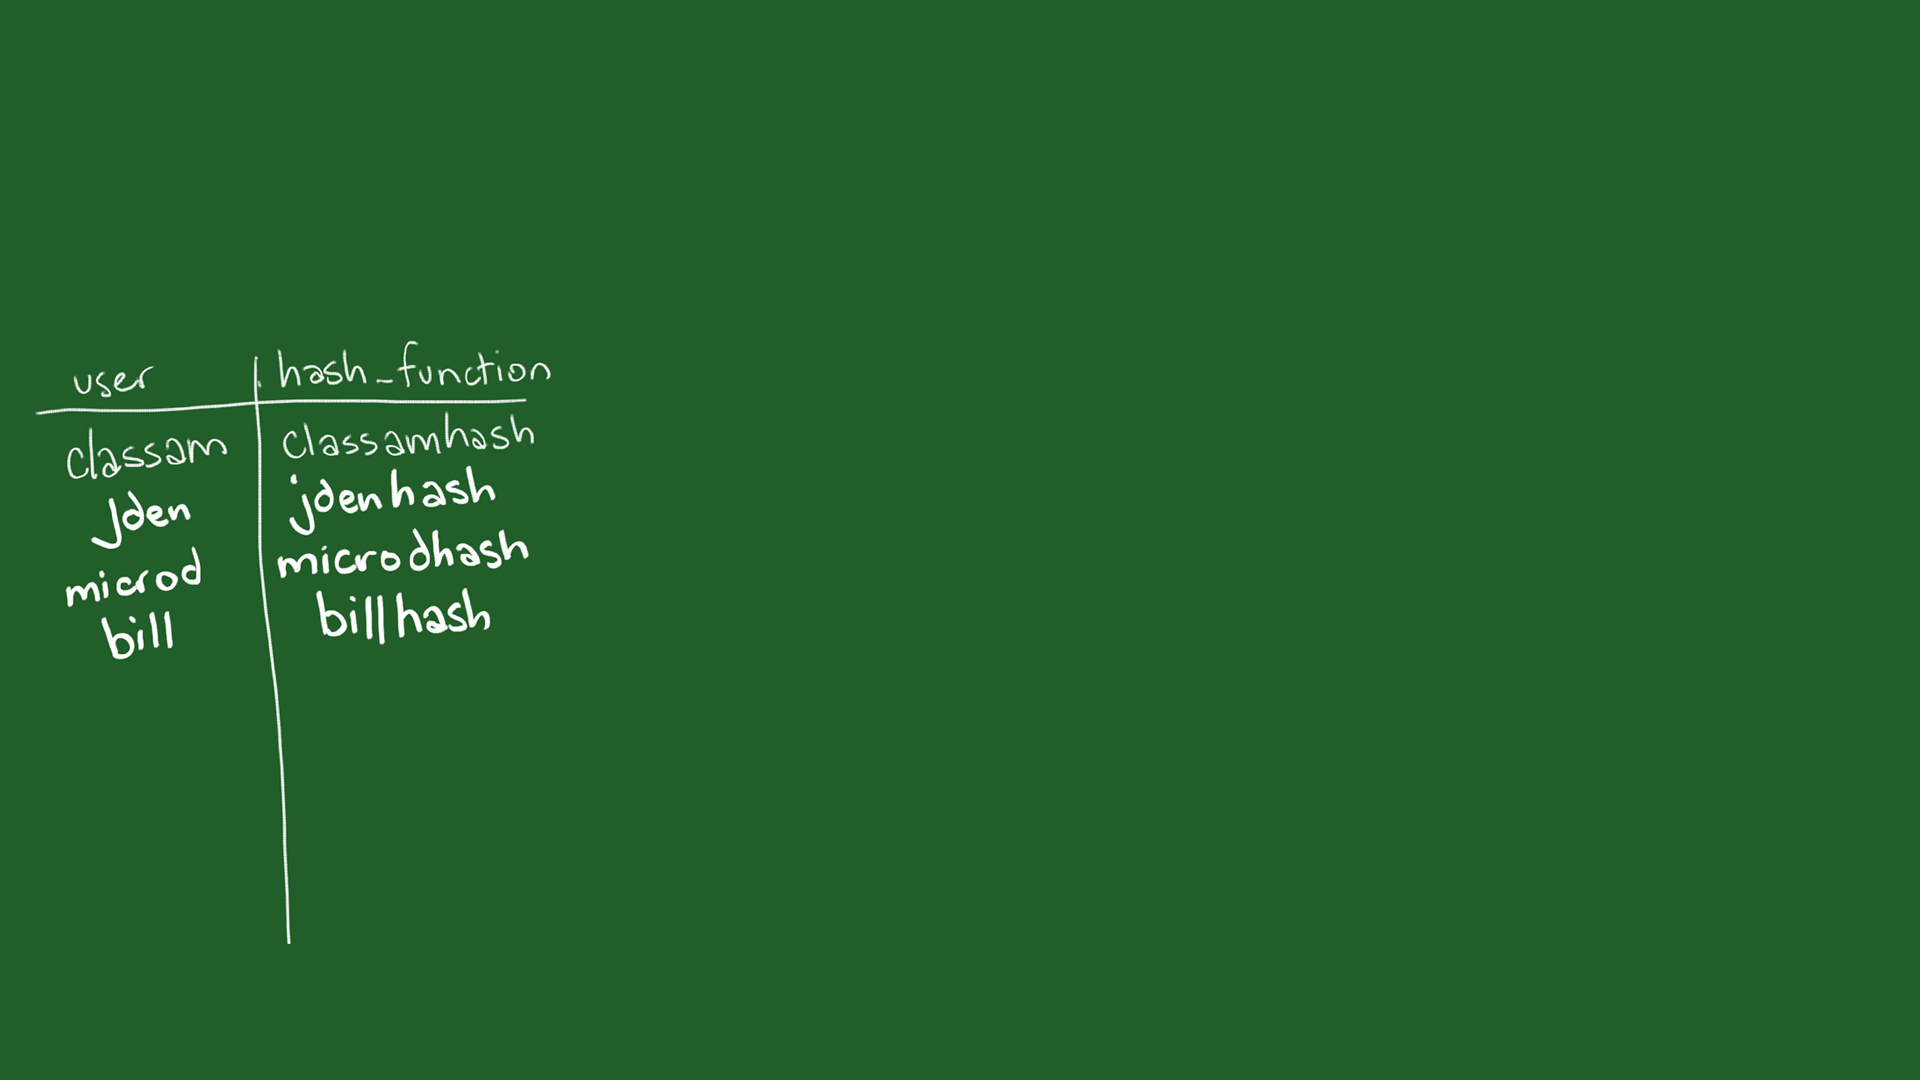 user hash_function
classam classamhash
jden jdenhash
microd microdhash
bill billhash